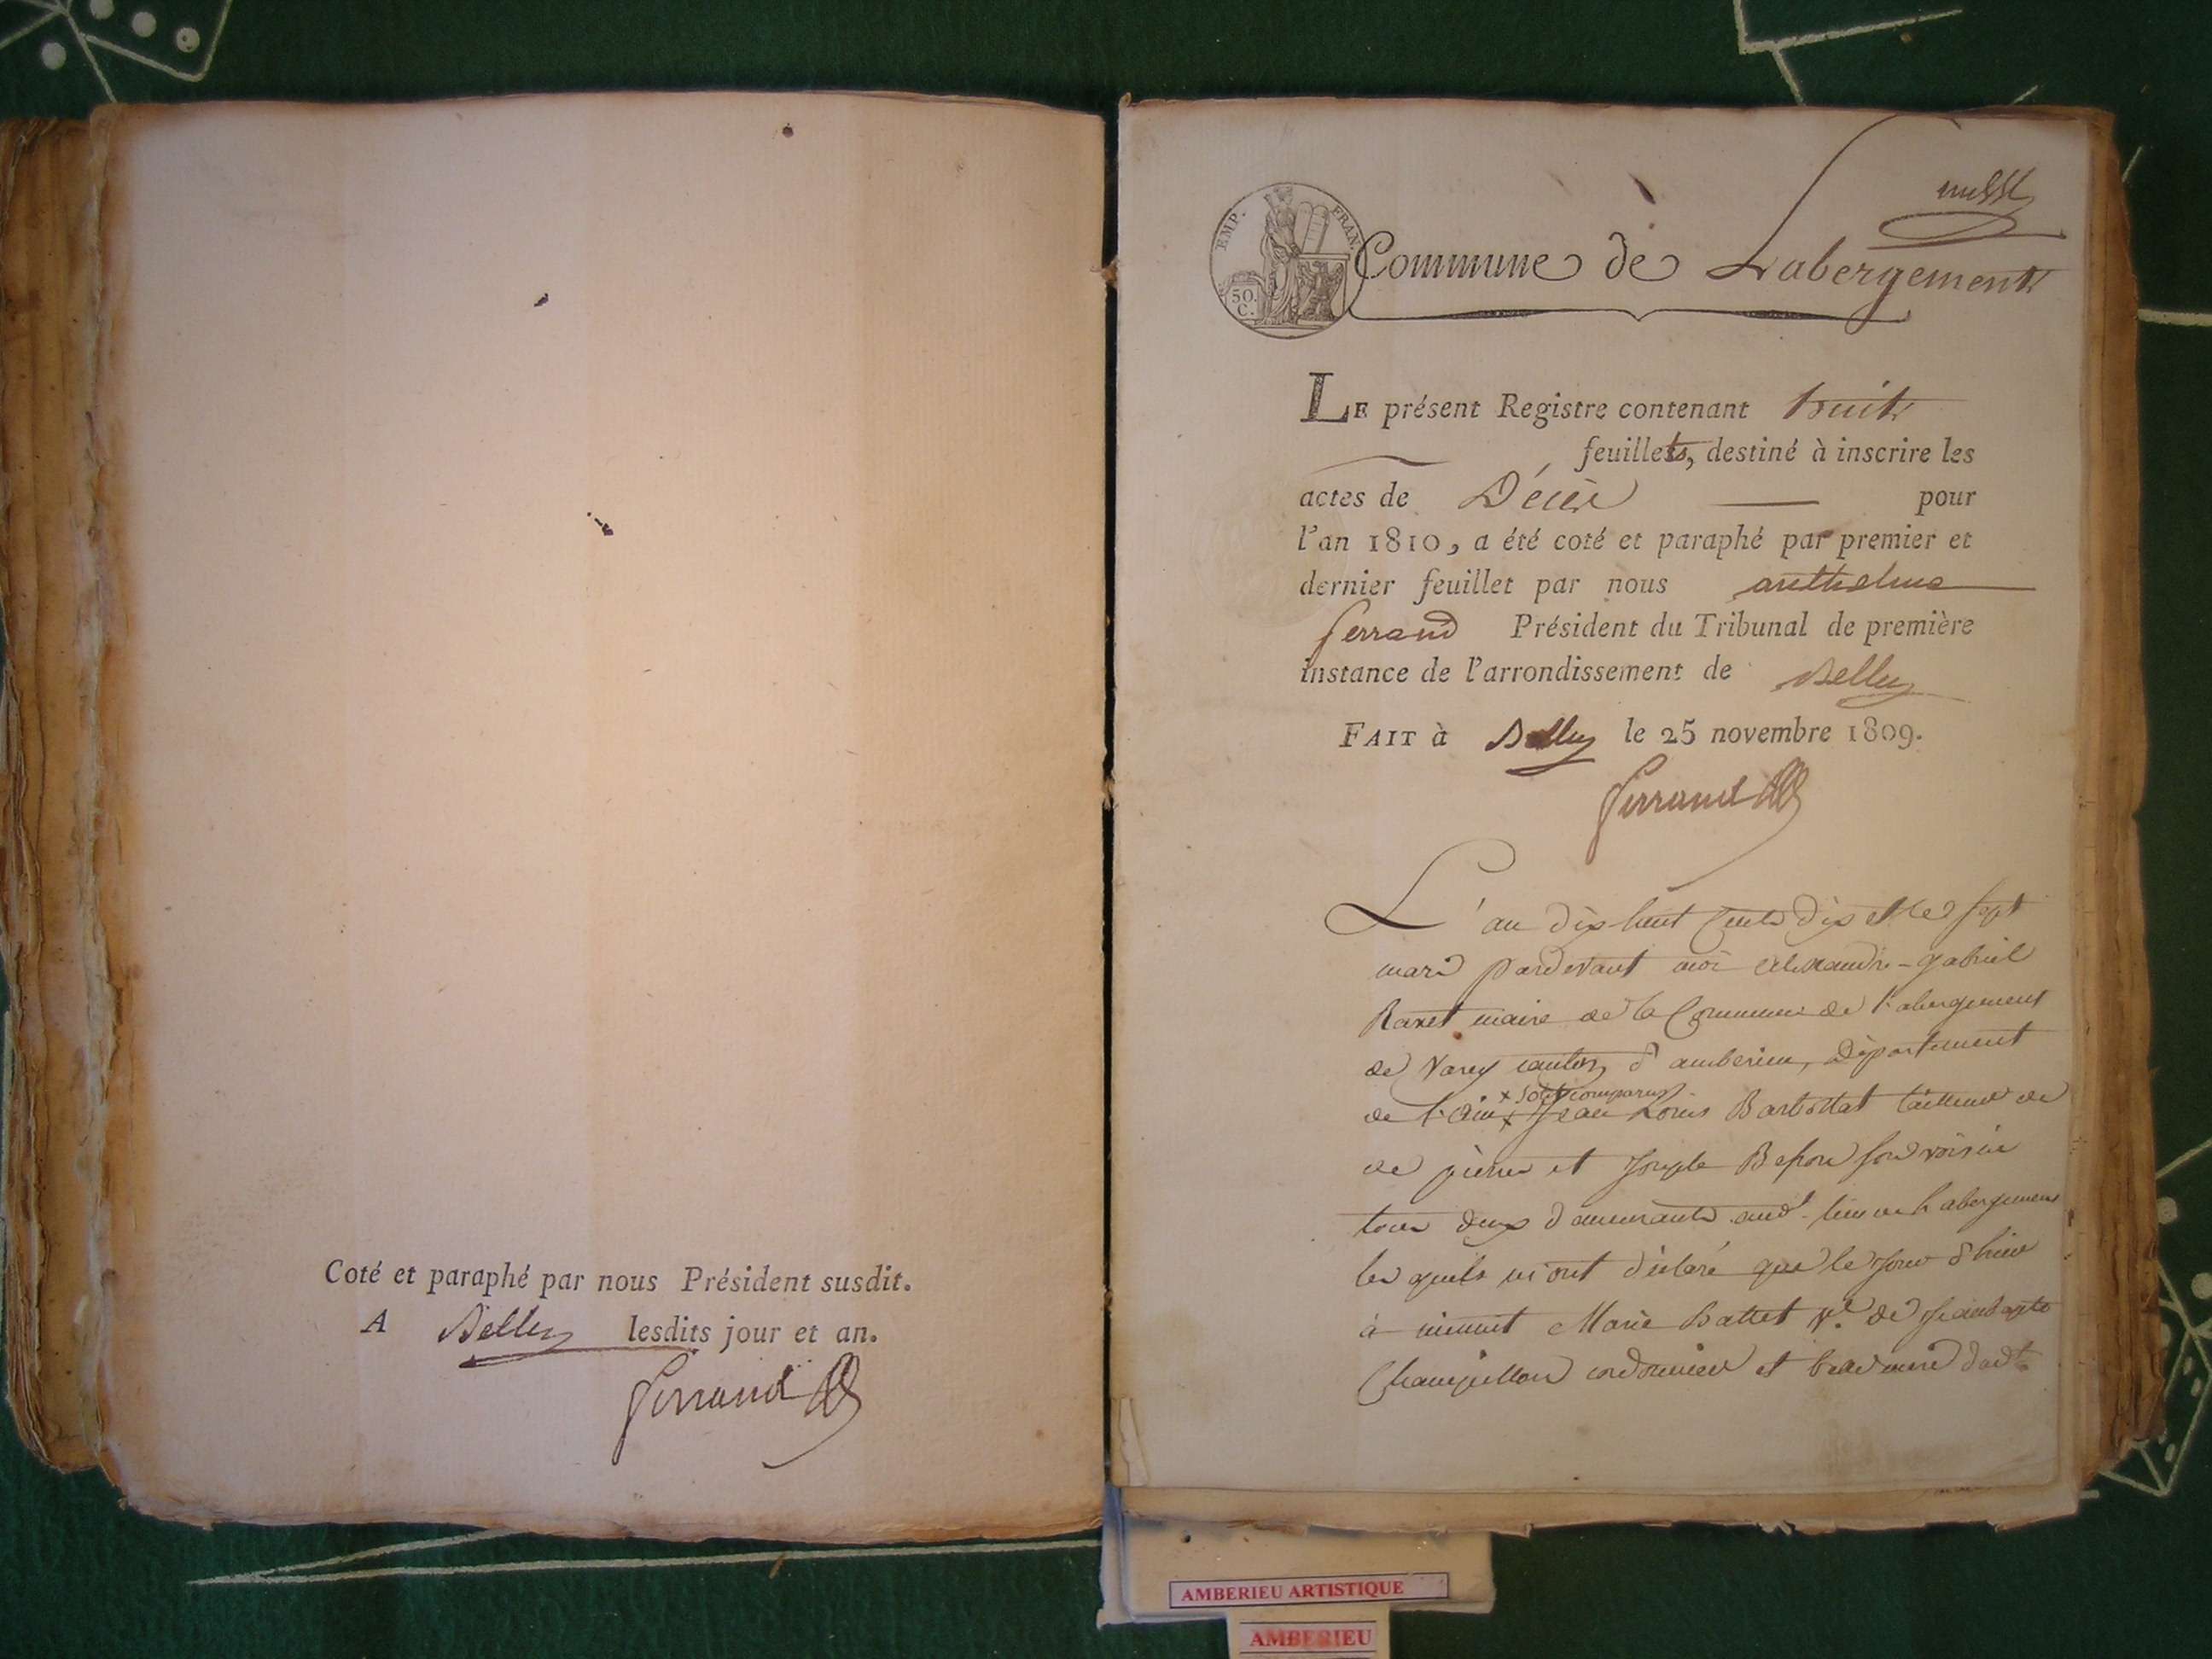 Coté et paraphé par nous Président susdit.
A Belley lesdits jour et an.
Ferrand
EMP. FRAN.
50.
C.
Commune de Labergement
LE présent Registre contenant huit
feuillets, destiné à inscrire les
actes de Décès pour
l'an 1810, a été coté et paraphé par premier et
dernier feuillet par nous anthelme
ferrand Président du Tribunal de première
instance de l'arrondissement de Belley
FAIT à Belley le 25 novembre 1809.
Ferrand
L'an dix-huit cents dix et le sept
mars pardevant moi Alexandre-gabriel
maire de la Commune de l'abergement
de Varey canton d'amberieu, Département
x sont comparus
de l'Ain x Jean Louis tailleur de
de pierre et Joseph son voisin
tous deux demeurants aud. lieu de l'abergement
les quels m'ont déclaré que le jour d'hier
à minuit Marie Battet Ve. de Jean bapte
cordonnier et belle mere dudt
AMBERIEU ARTISTIQUE
AMBERIEU